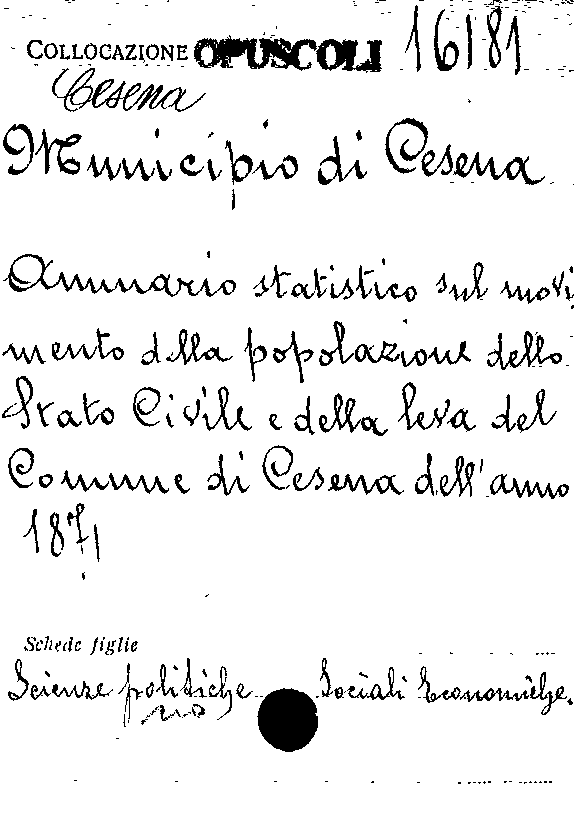 COLLOCAZIONE OPUSCOLI 16181
Cesena
Municipio di Cesena
Annuario statistico sul movi
mento della popolazione dello
Stato Civile e della leva del
Comune di Cesena dell'anno
1871
Schede figlie
Scienze politiche Sociali Economiche.
no